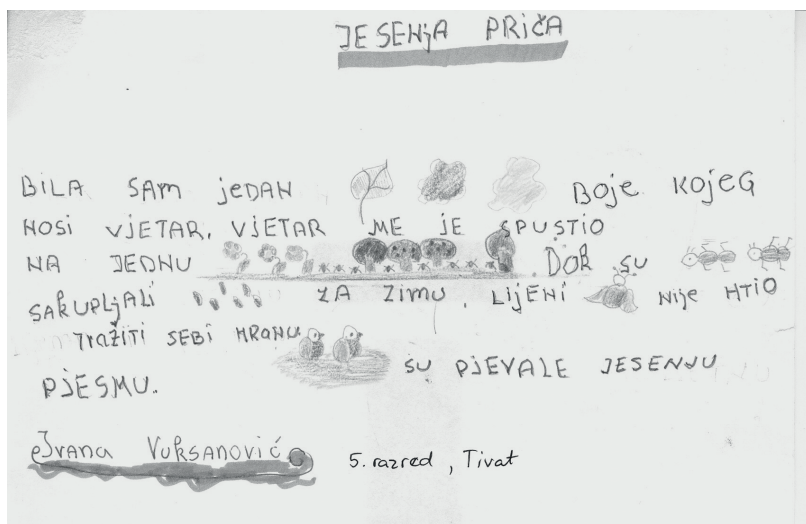 JESENjA PRIČA
BILA SAM jEDAN BOjE KOjEG
NOSI VjETAR. VjETAR ME jE SPUSTIO
NA JEDNU . DOK SU
SAKUPLjALI ZA ZIMU. LIjENI NIjE HTIO
TRAŽITI SEBI HRANU.
SU PJEVALE JESENJU
PJESMU.
Ivana Vuksanović 5. razred, Tivat